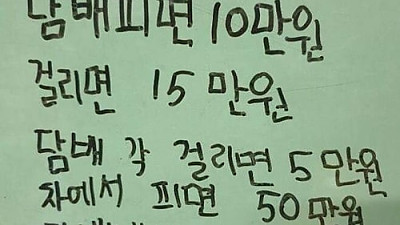 담배피면 10만원
걸리면 15만원
담배 각 걸리면 5만원
차에서 피면 50만원